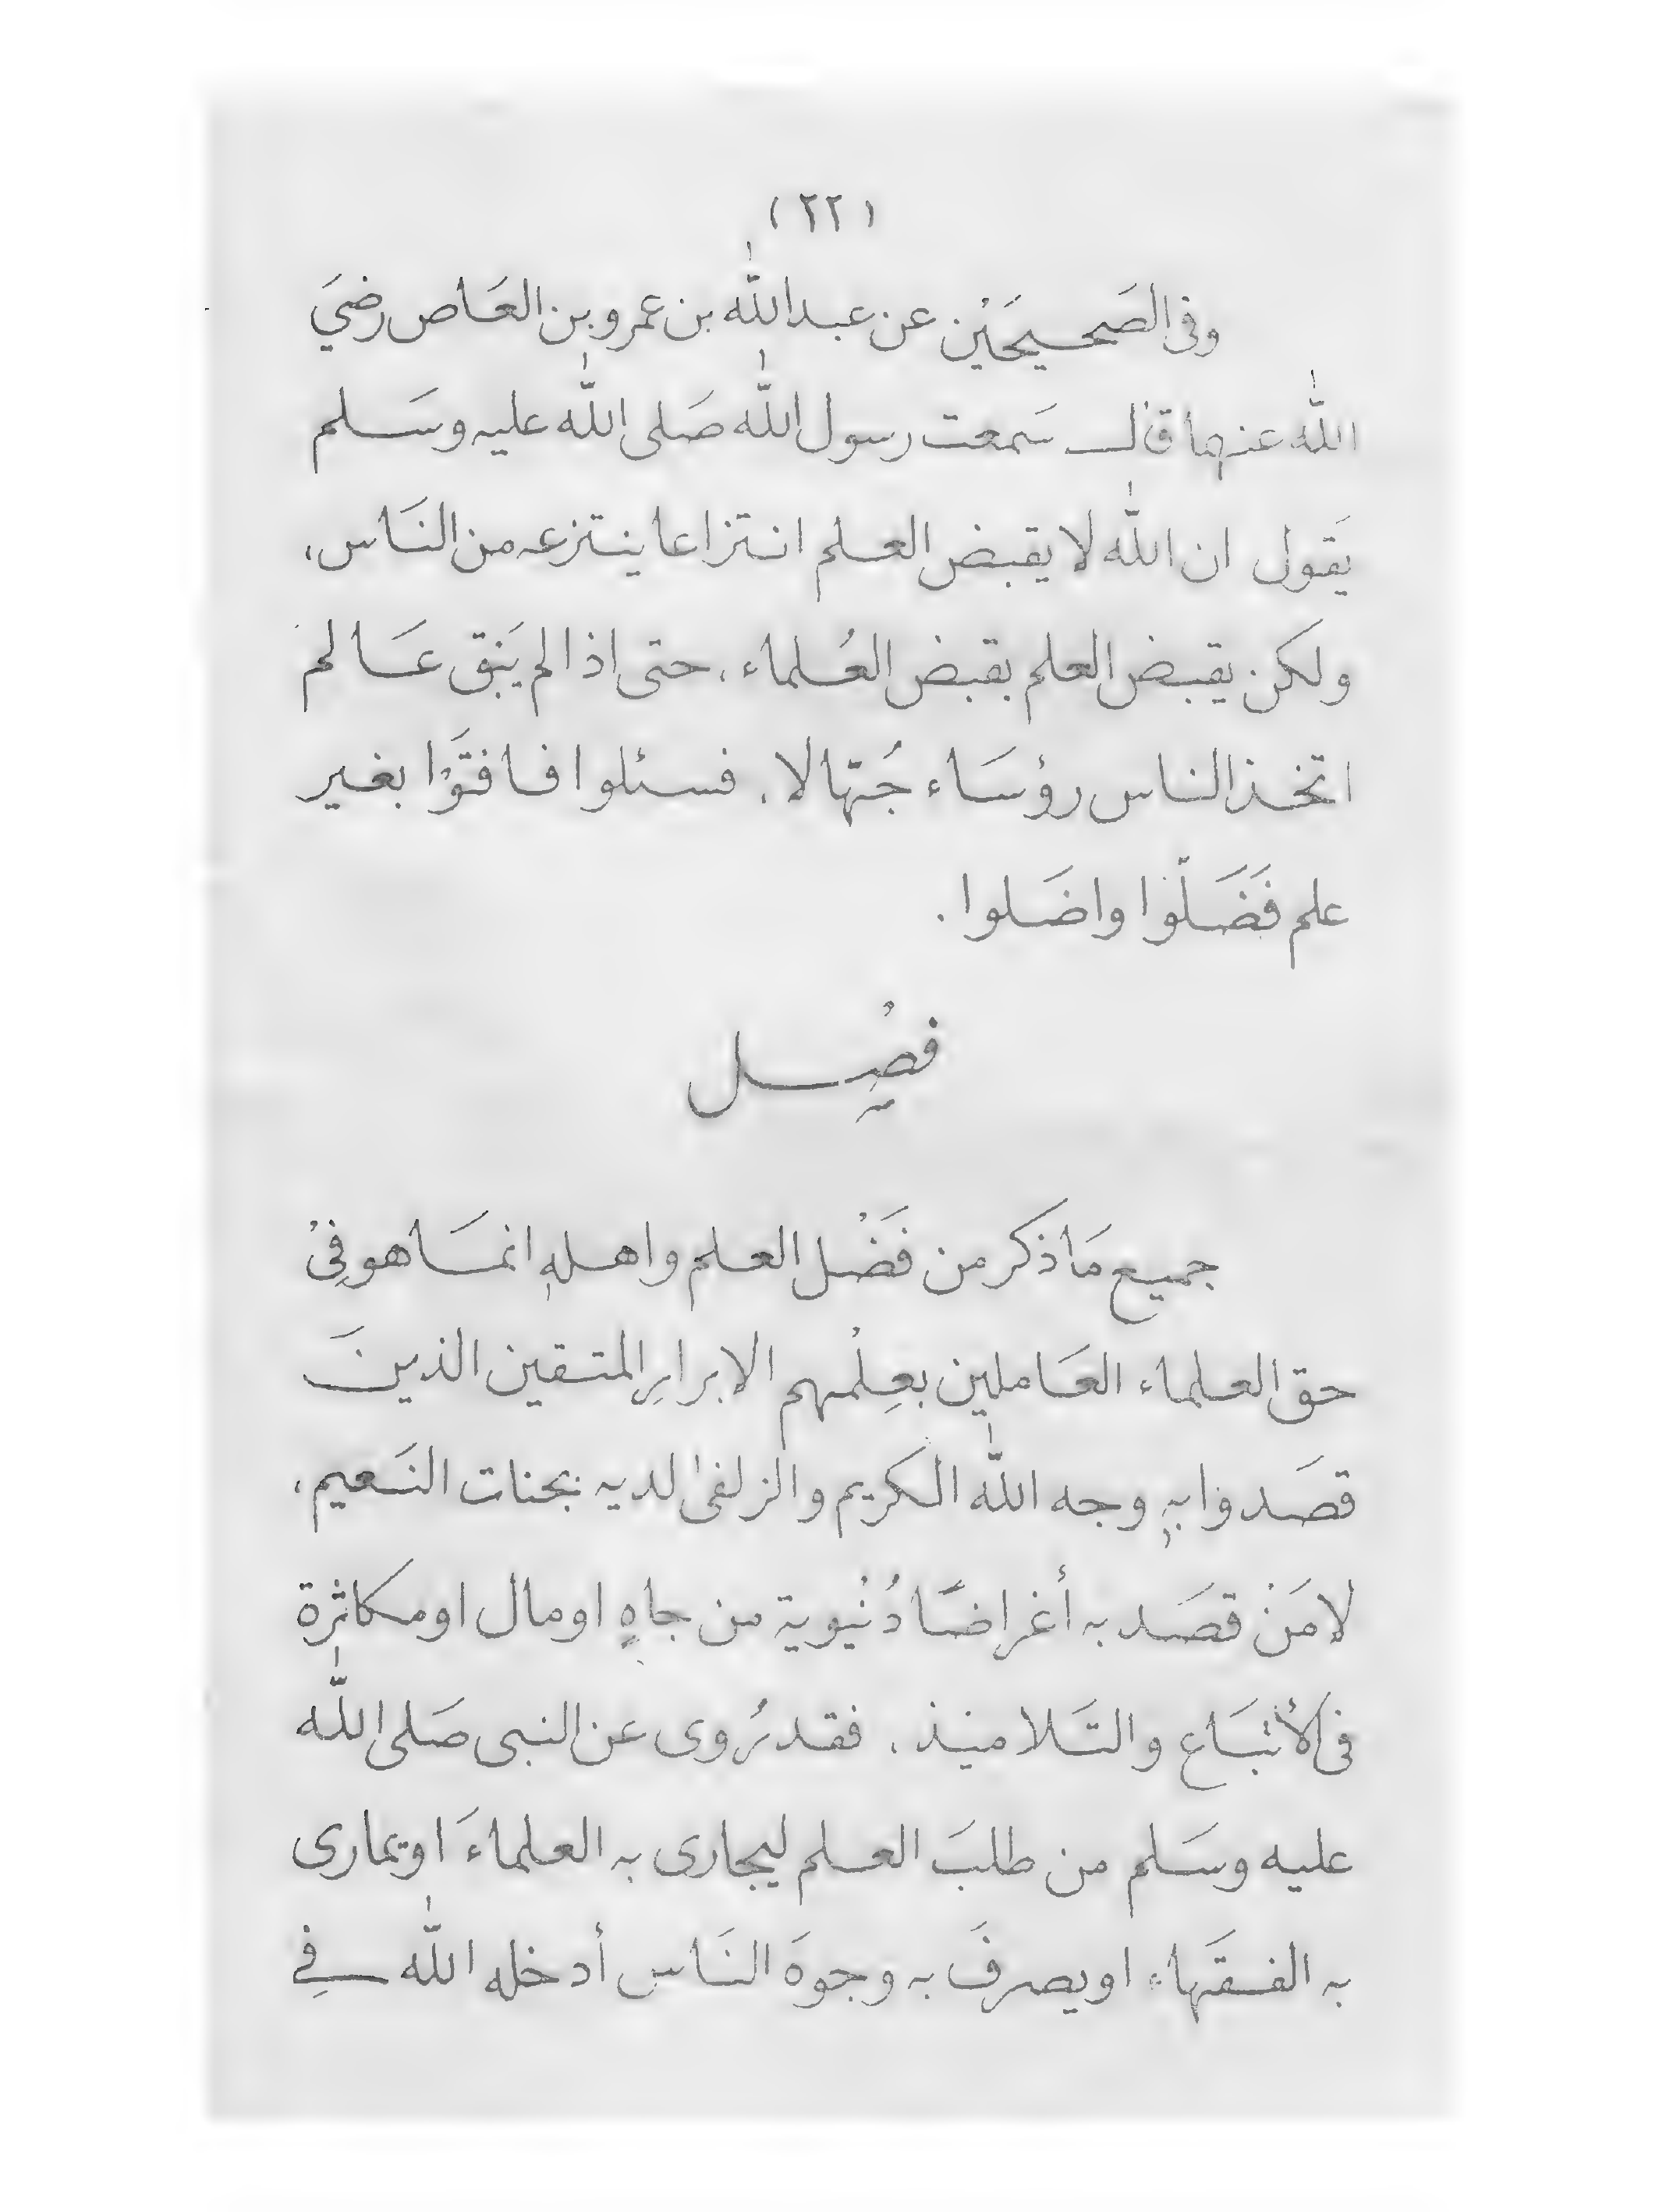 (٢٢)
وفى الصَحيحَيْن عن عبدالله بن عمرو بن العَاص رضيَ
الله عنهما قال سَمعت رسول الله صَلى الله عليه وسَلم
يَقول ان الله لا يقبض العلم انتزاعا ينتزعه من النَاس،
ولكن يقبض العلم بقبض العُلماء، حتى اذا لم يَبق عَالم
اتخذ الناس رؤسَاء جُهّالا، فسئلوا فافتَوْا بغير
علم فَضَلّوا واضَلوا.
فصْل
جميع مَا ذكر من فَضْل العلم واهله انمَا هو فِىْ
حق العلماء العَاملين بعِلْمهم الابرارِ المتقين الذينَ
قصَدوا به وجه الله الكريم والزلفىٰ لديه بجنات النَعيم،
لا مَنْ قصَد به أغراضًا دُنْيوية من جاهٍ او مال او مكاثرة
فى الأتبَاع والتَلاميذ، فقد رُوى عن النبى صَلى الله
عليه وسَلم من طلبَ العلم ليجارى به العلماءَ او يمارى
به الفقَهاء او يصرفَ به وجوهَ النَاس أدخله الله فِي